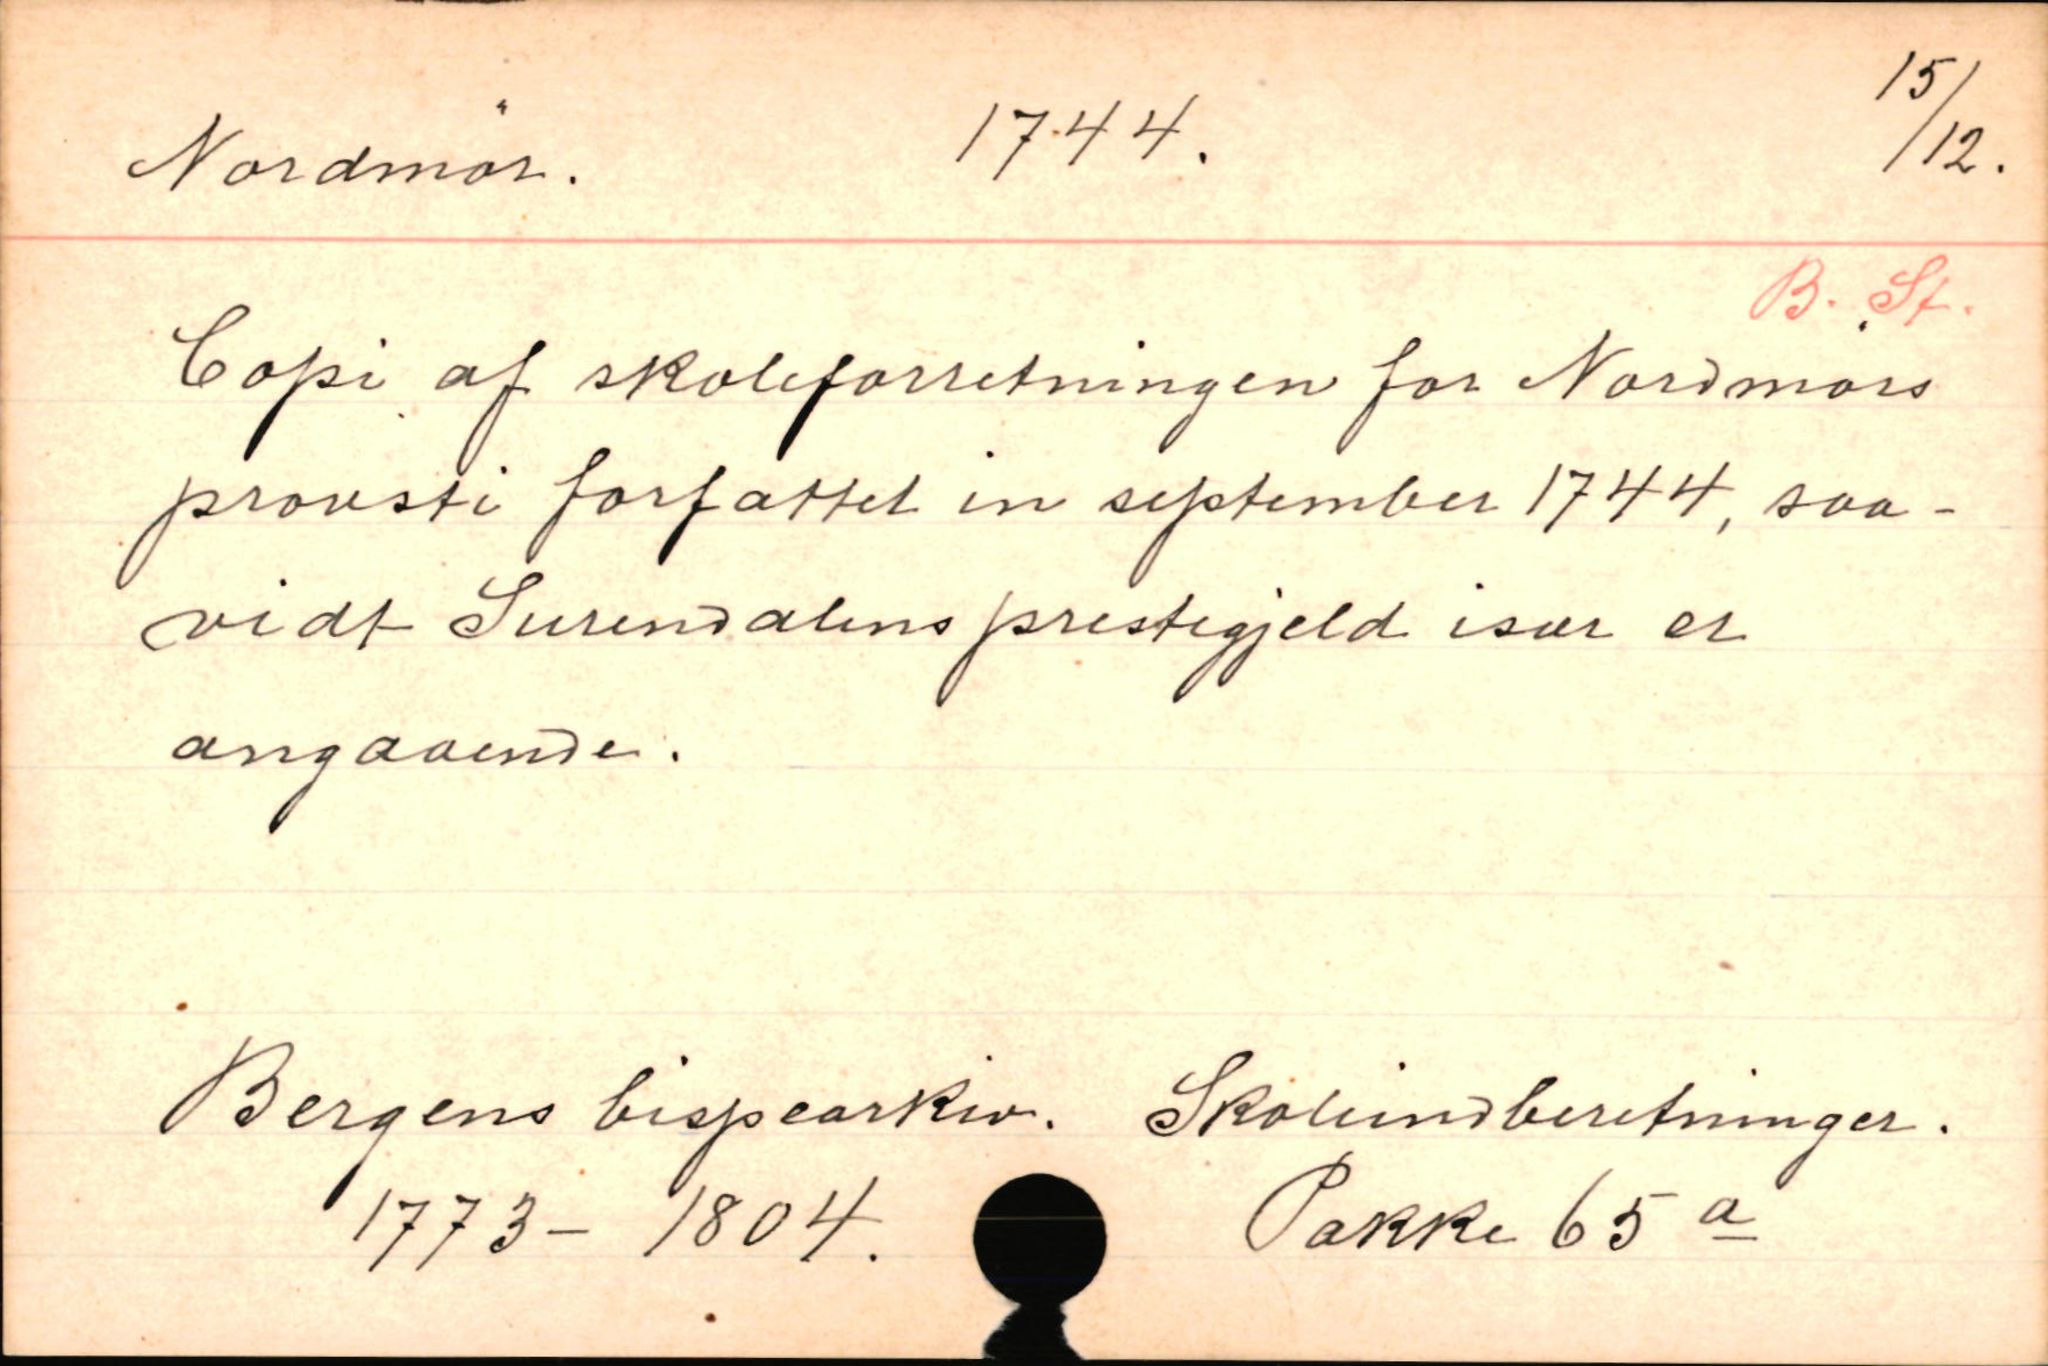 Nordmör. 1744. 15/12.
B. St.
Copi af skoleforretningen for Nordmors
provsti forfattet in september 1744, saa-
vidt Surendalens prestegjeld især er
angaaende.
Bergens bispearkiv. Skoleindberetninger.
1773- 1804. Pakke 65 a